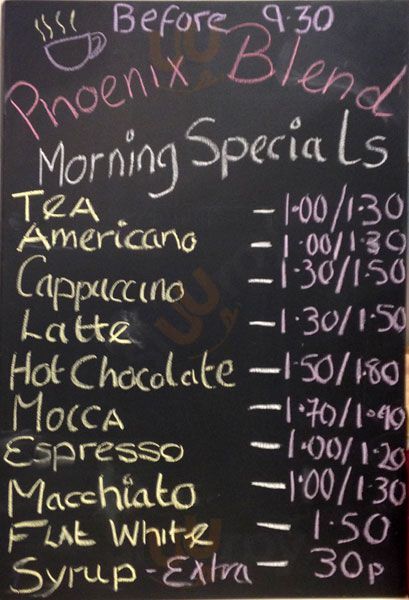 Before 9.30
Phoenix Blend
Morning Specials
TEA - 1.00/1.30
Americano - 1.00/1.30
Cappuccino - 1.30/1.50
Latte - 1.30/1.50
Hot Chocolate - 1.50/1.80
MOCCA - 1.70/1.90
Espresso - 1.00/1.20
Macchiato - 1.00/1.30
FLAT WHITE - 1.50
Syrup - Extra - 30p